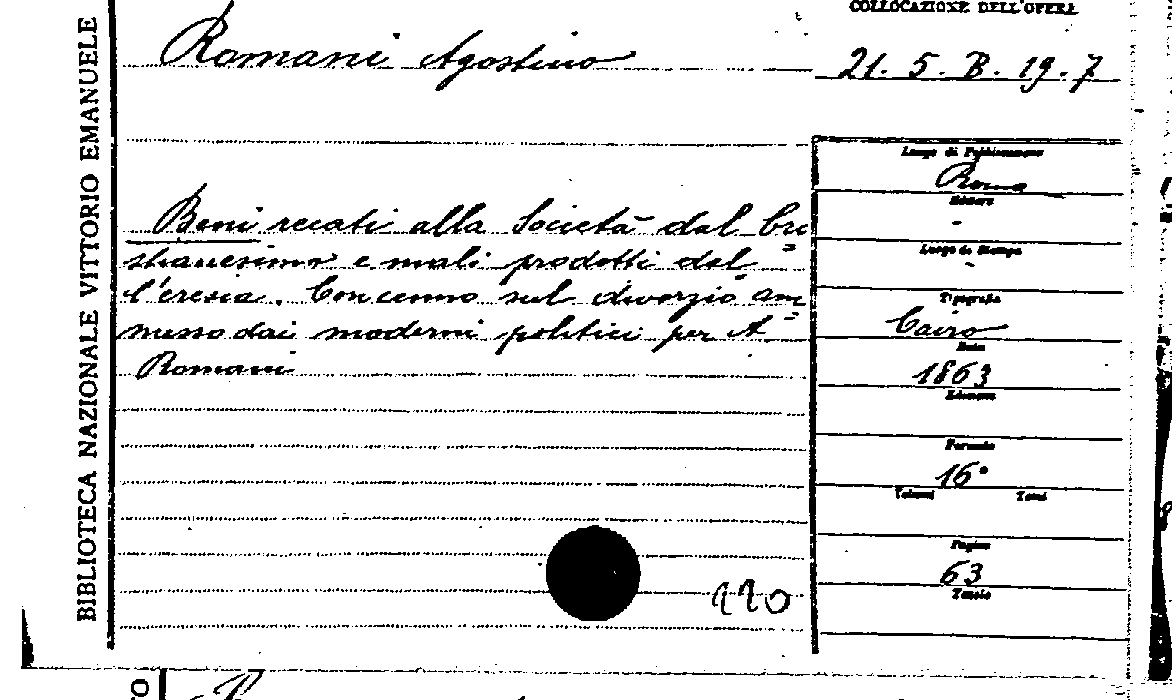 BIBLIOTECA NAZIONALE VITTORIO EMANUELE
COLLOCAZIONE DELL'OPERA
Romani Agostino
21. 5. B. 19. 7
Beni recati alla Società dal Cri=
stianesimo e mali prodotti dal=
l'eresia. Con cenno sul divorzio am=
messo dai moderni politici per A
Romani
Luogo di Pubblicazione
Roma
Editore
-
Luogo di Stampa
-
Tipografia
Cairo
Data
1863
Edizione
Formato
16°
Volumi Tomi
Pagine
63
Tavole
110